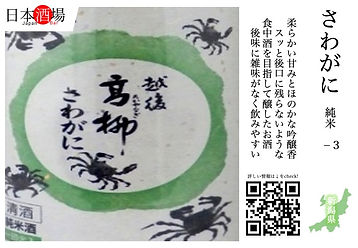 日本酒場
Japan Bar
越後
高柳
さわがに
清酒
純米酒
さわがに 純米 －3
柔らかい甘みとほのかな吟醸香
スッと後口に残らないような
食中酒を目指して醸したお酒
後味に雑味がなく飲みやすい
詳しい情報はこちらcheck!
新潟県